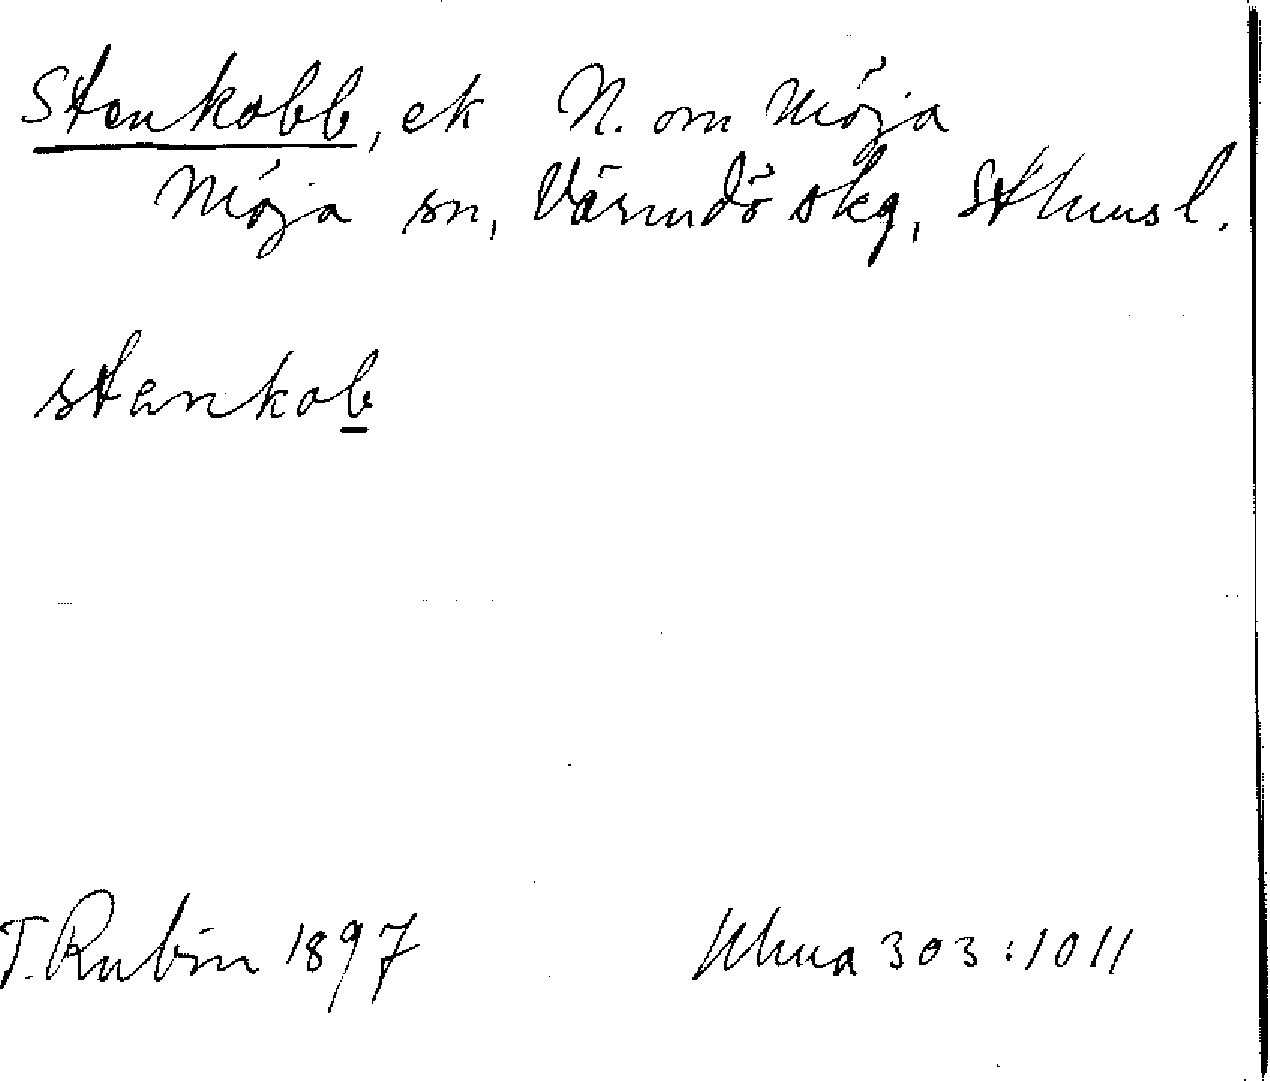 Stenkobb, ek N. om Möja
Möja sn, Värmdö skg, Sthms l.
stenkob
T. Rubin 1897 Ulma 303:1011